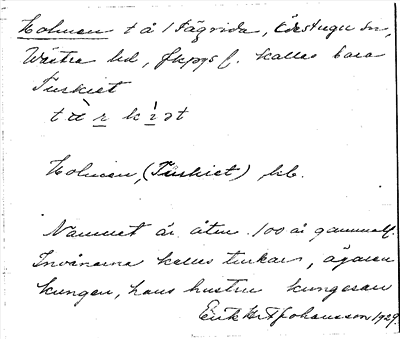 Holmen t å 1 Fägrida, Ödestugu sn,
Västra hd, Jkpgs l. kallas bara
Turkiet
Holmen, (Turkiet) hb.
Namnet är åtm. 100 år gammalt.
Invånarna kallas turkar, ägaren
kungen, hans hustru kungesan
Erik H. T. Johansson 1929.